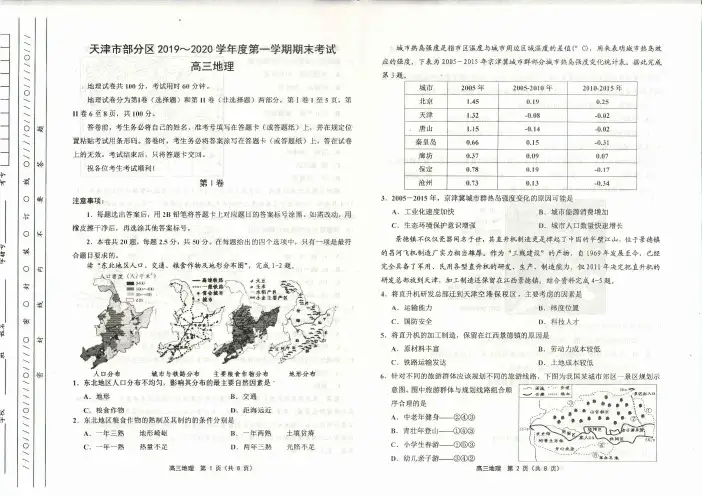 天津市部分区 2019～2020 学年度第一学期期末考试
高三地理
地理试卷共 100 分，考试用时 60 分钟。
地理试卷分为第Ⅰ卷（选择题）和第 II 卷（非选择题）两部分。第Ⅰ卷 1 至 5 页，第
II 卷 6 至 8 页，共 100 分。
答卷前，考生务必将自己的姓名、准考号填写在答题卡（或答题纸）上，并在规定位
置粘贴考试用条形码。答卷时，考生务必将答案涂写在答题卡（或答题纸）上，答在试卷
上的无效。考试结束后，只将答题卡交回。
祝各位考生考试顺利！
第Ⅰ卷
注意事项：
1．每题选出答案后，用 2B 铅笔将答题卡上对应题目的答案标号涂黑。如需改动，用
橡皮擦干净后，再选涂其他答案标号。
2．本卷共 20 题，每题 2.5 分，共 50 分。在每题给出的四个选项中，只有一项是最符
合题目要求的。
读“东北地区人口、交通、粮食作物及地形分布图”，完成 1-2 题。
人口分布
城市与铁路分布
主要粮食作物分布
地形分布
1．东北地区人口分布不均匀，影响其分布的最主要自然因素是
A．地形
B．交通
C．粮食作物
D．距海远近
2．东北地区粮食作物的熟制及其制约的条件分别是
A．一年三熟 地形崎岖
B．一年两熟 土壤贫瘠
C．一年一熟 热量不足
D．两年三熟 光照不足
高三地理 第 1 页（共 8 页）
城市热岛强度是指市区温度与城市周边区域温度的差值(℃)，用来表明城市热岛效
应的强度。下表为 2005－2015 年京津冀城市群部分城市热岛强度变化统计表。据此完成
第 3 题。
城市 2005 年 2005-2010 年 2010-2015 年
北京 1.45 0.19 0.25
天津 1.32 -0.08 -0.02
唐山 1.15 -0.14 -0.02
秦皇岛 0.66 0.15 -0.31
廊坊 0.37 0.09 0.07
保定 0.78 0.19 -0.17
沧州 0.73 0.13 -0.34
3．2005－2015 年，京津冀城市群热岛强度变化的原因可能是
A．工业化速度加快
B．城市能源消费增加
C．生态环境保护意识增强
D．城市人口数量快速增长
景德镇不仅仅瓷器闻名于世，其直升机制造更是撑起了中国的半壁江山。位于景德镇
的昌河飞机制造厂实力相当雄厚。作为“三线建设”的产物，自 1969 年发展至今，已经
完全具备了军用、民用各型直升机的研发、生产、制造能力。但 2011 年决定把直升机的
研发总部放到天津，加工制造还保留在江西景德镇。结合资料完成 4-5 题。
4．将直升机研发总部迁到天津空港保税区，主要考虑的因素是
A．运输能力
B．纬度位置
C．国防安全
D．科技人才
5．将直升机的加工制造，保留在江西景德镇的原因是
A．原材料丰富
B．劳动力成本较低
C．铁路运输发达
D．土地成本较低
6．针对不同的旅游群体应该规划不同的旅游线路。下图为我国某城市郊区一景区规划示
意图。图中旅游群体与规划线路组合顺
序合理的是
A．中老年健身——②④③
B．青壮年登山——①④③
C．小学生春游——①⑤③
D．幼儿亲子游——③④②
高三地理 第 2 页（共 8 页）